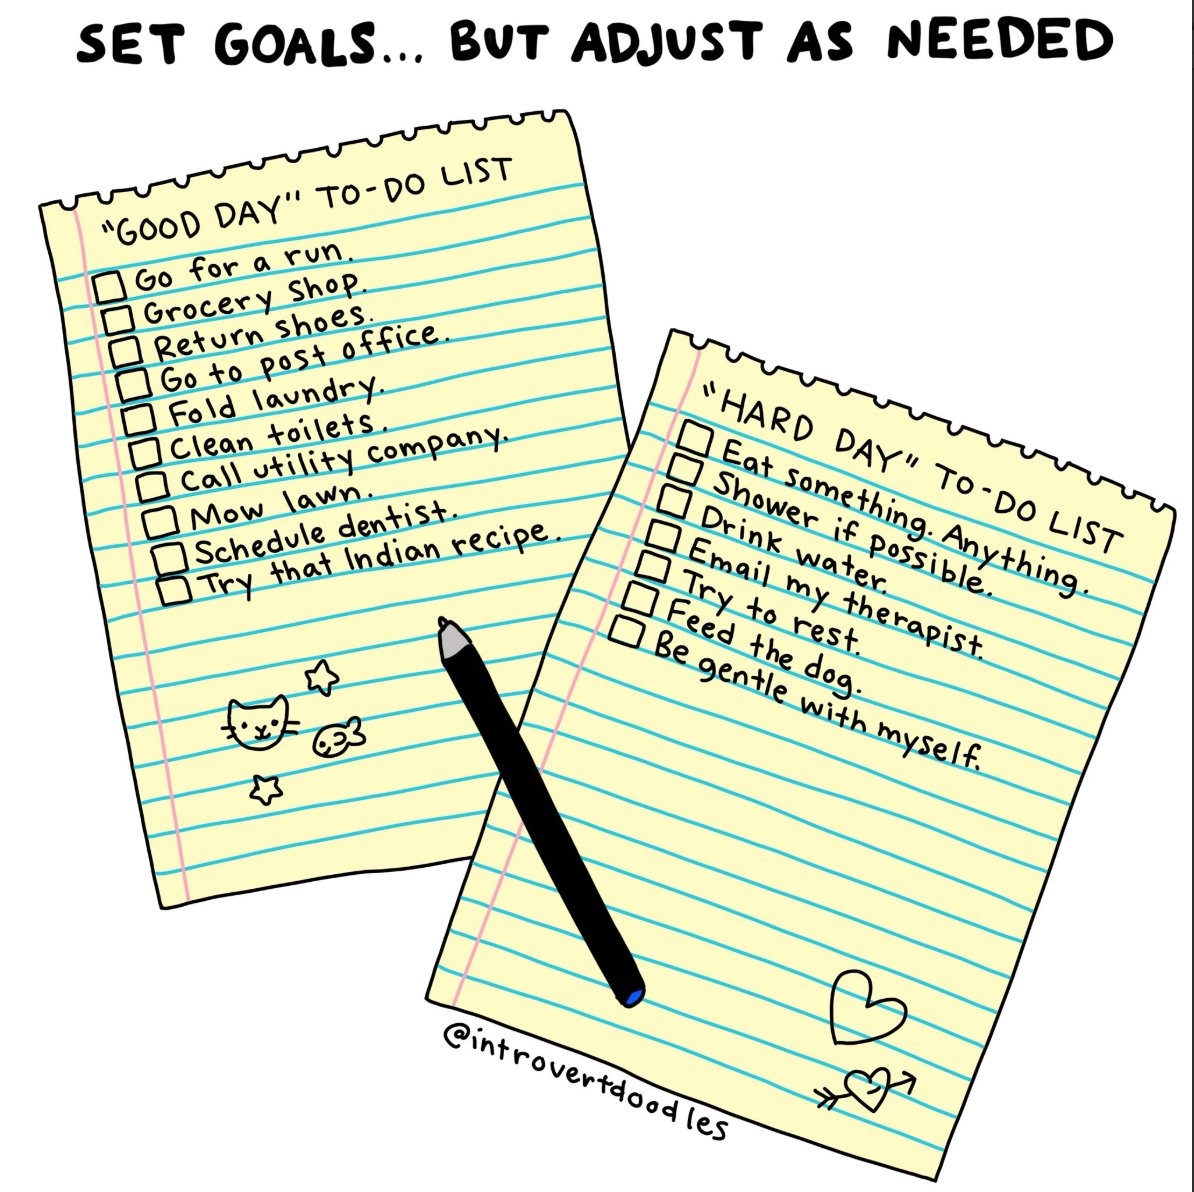 SET GOALS... BUT ADJUST AS NEEDED
"GOOD DAY" TO-DO LIST
Go for a run.
Grocery shop.
Return shoes.
Go to post office.
Fold laundry.
Clean toilets.
Call utility company.
Mow lawn.
Schedule dentist.
Try that Indian recipe.
"HARD DAY" TO-DO LIST
Eat something. Anything.
Shower if possible.
Drink water.
Email my therapist.
Try to rest.
Feed the dog.
Be gentle with myself.
@introvertdoodles